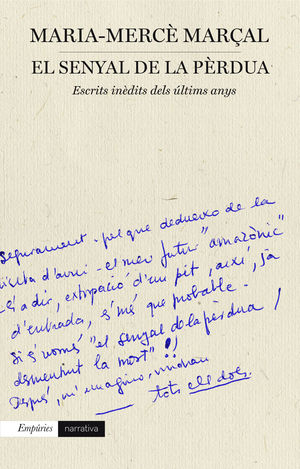 MARIA-MERCÈ MARÇAL
EL SENYAL DE LA PÈRDUA
Escrits inèdits dels últims anys
segurament - pel que dedueixo de la
visita d'avui - el meu futur "amazònic"
és a dir, extirpació d'un pit, així, ja
d'entrada, és més que probable.
Si és només "el senyal de la pèrdua /
desmentint la mort"!!
Després, m'imagino, vindran
tots els dols.
Empúries
narrativa